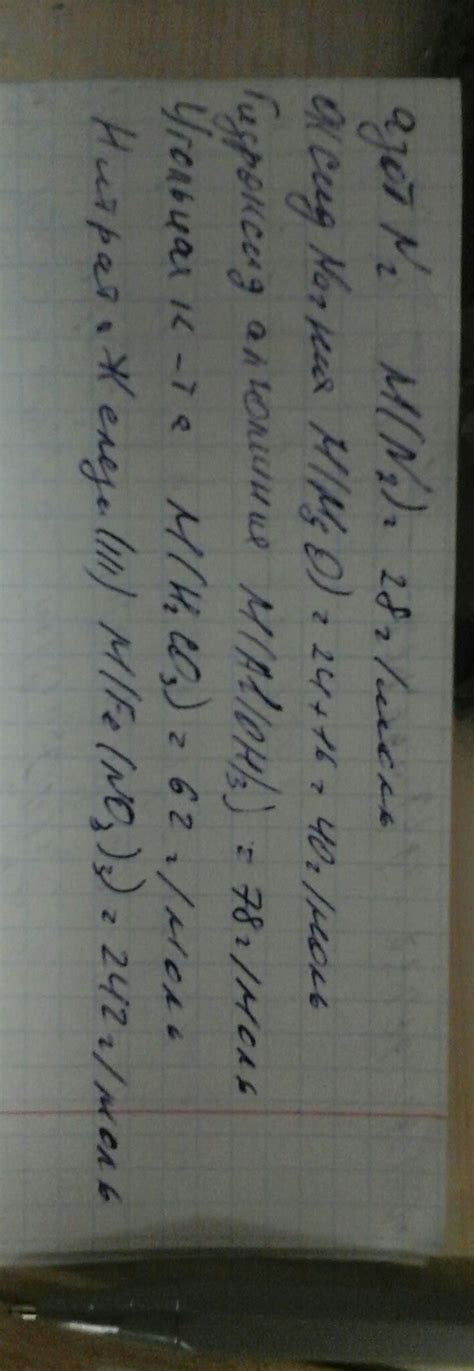 азот N2 M(N2)= 28г/моль
Оксид Магния M(MgO) = 24+16 = 40г/моль
Гидроксид алюминия M(Al(OH)3) = 78г/моль
Угольная к-та M(H2CO3) = 62г/моль
Нитрат Железа(III) M(Fe(NO3)3) = 242г/моль